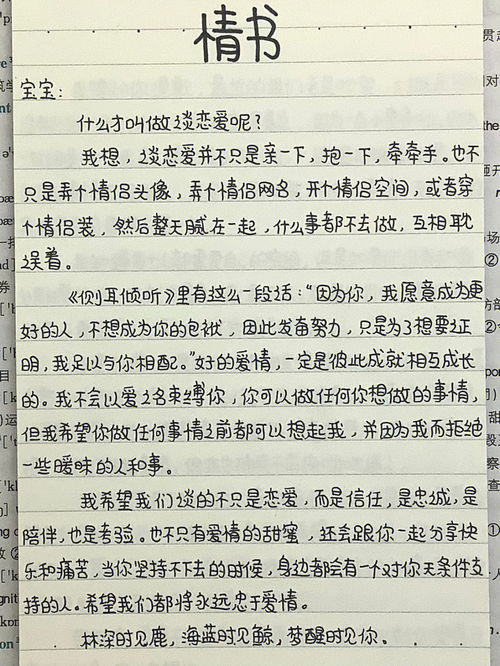 情书
宝宝：
什么才叫做谈恋爱呢？
我想，谈恋爱并不只是亲一下，抱一下，牵牵手。也不
只是弄个情侣头像，弄个情侣网名，开个情侣空间，或者穿
个情侣装，然后整天腻在一起，什么事都不去做，互相耽
误着。
《侧耳倾听》里有这么一段话：“因为你，我愿意成为更
好的人，不想成为你的包袱，因此发奋努力，只是为了想要证
明，我足以与你相配。”好的爱情，一定是彼此成就相互成长
的。我不会以爱之名束缚你，你可以做任何你想做的事情，
但我希望你做任何事情之前都可以想起我，并因为我而拒绝
一些暧昧的人和事。
我希望我们谈的不只是恋爱，而是信任，是忠诚，是
陪伴，也是考验。也不只有爱情的甜蜜，还会跟你一起分享快
乐和痛苦，当你坚持不下去的时候，身边都会有一个对你无条件支
持的人。希望我们都将永远忠于爱情。
林深时见鹿，海蓝时见鲸，梦醒时见你。